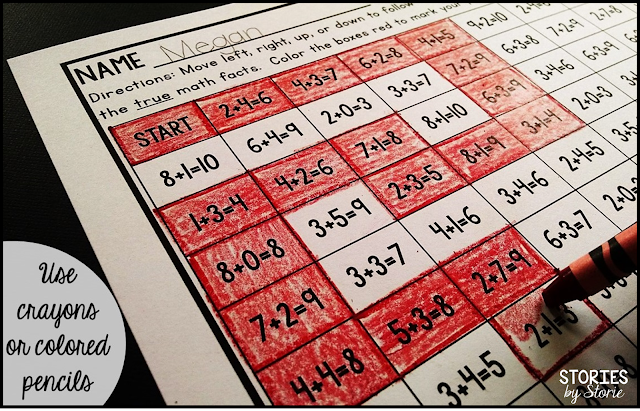 NAME Megan
Directions: Move left, right, up, or down to follow
the true math facts. Color the boxes red to mark your
START 2+4=6 4+3=7 6+2=8 4+1=5 9+2=10
8+1=10 6+4=9 2+0=3 3+3=7 7+2=9 6+3=8
1+3=4 4+2=6 7+1=8 8+1=10 6+3=9 3+4=6
8+0=8 3+5=9 2+3=5 8+1=9 3+1=4 2+0=3
7+2=9 3+3=7 4+1=6 3+4=6 2+4=5
4+4=8 5+3=8 2+7=9 6+3=7
3+4=5 2+1=3
Use
crayons
or colored
pencils
STORIES
by Storie